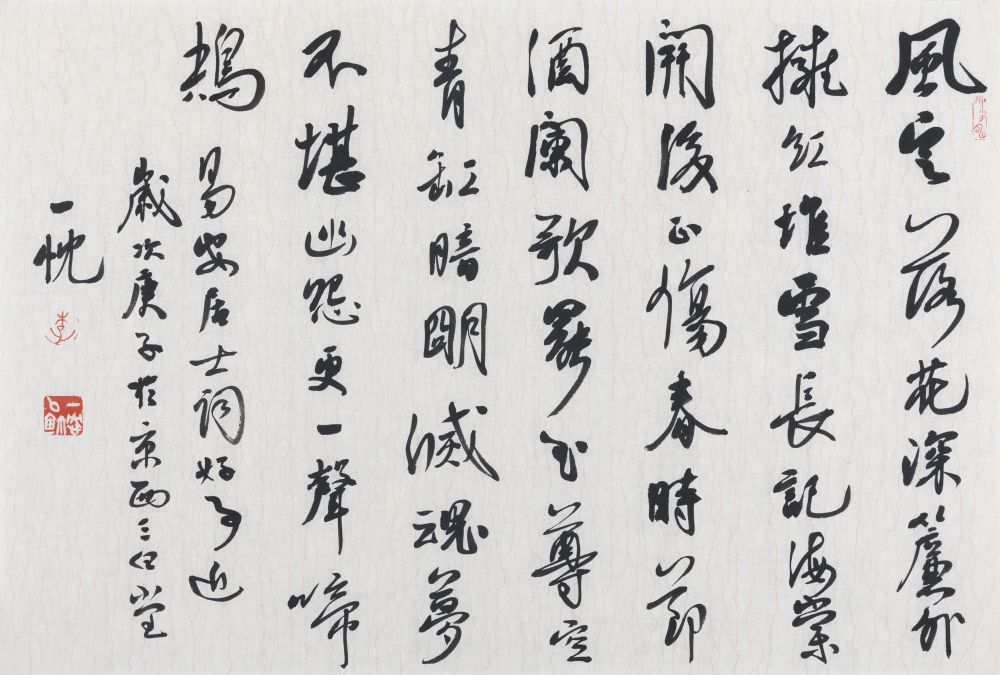 風定落花深簾外
擁紅堆雪長記海棠
開後正傷春時節
酒闌歌罷玉尊空
青缸暗朙滅魂夢
不堪幽怨更一聲啼
鴂 易安居士詞好事近
歲次庚子於京西三堂
一忱
李